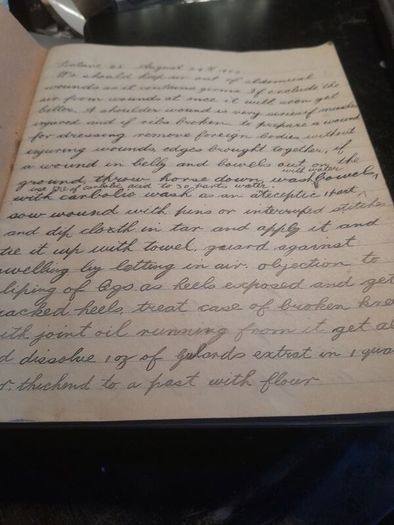 August 24th
We should keep air out of abdominal
wounds as it contains germs. If exclude the
air from wounds at once it will soon get
better. A shoulder wound is very serious if muscles
injured and if ribs broken. to prepare a wound
for dressing remove foreign bodies without
injuring wounds edges brought together, if
a wound in belly and bowels out on the
ground, throw horse down wash bowels, with water
with carbolic wash as an ateceptic 1 part
of carbolic acid to 30 parts water.
sow wound with pins or interrupted stitches
and dip cloth in tar and apply it and
tie it up with towel, guard against
swelling by letting in air. objection to
cliping of legs as heels exposed and get
cracked heels, treat case of broken knee
with joint oil running from it, get
dissolve 1 oz of gulards extrat in 1 quart
thickend to a past with flour